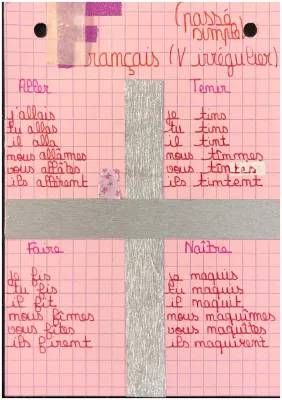 (passé
simple)
Français (V irrégulier)
Aller
j'allais
tu allas
il alla
nous allâmes
vous allâtes
ils allèrent
Tenir
je tins
tu tins
il tint
nous tînmes
vous tîntes
ils tintent
Faire
je fis
tu fis
il fit
nous fîmes
vous fîtes
ils firent
Naître
je naquis
tu naquis
il naquit
nous naquîmes
vous naquîtes
ils naquirent